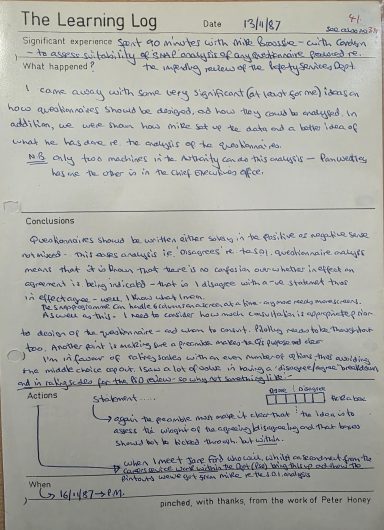 The Learning Log
Date 13/11/87
41
see also no
Significant experience Spent 90 minutes with Mike - with
- to assess suitability of SNAP analysis of any questionnaire produced re.
What happened? the impending review of the Dept.
I came away with some very significant (at least for me) ideas on
how questionnaires should be designed, and how they could be analysed. In
addition, we were shown how Mike set up the data and a better idea of
what he has done re. the analysis of the questionnaires.
N.B only two machines in the Authority can do this analysis -
has one the other is in the Chief Executives office.
Conclusions
Questionnaires should be written either solely in the positive or negative sense
not mixed. This eases analysis ie. 'disagrees' re. questionnaire analysis
means that it is known that there is no confusion over whether in effect an
agreement is being indicated - that is I disagree with a -ve statement thus
in effect agree - well, I know what I mean.
The snap programme can handle 6 columns on a screen at a time - any more needs more screens.
As well as this - I need to consider how much consultation is appropriate prior
to design of the questionnaire - and whom to consult. Piloting needs to be thought out
too. Another point is making sure a preamble makes the Q's purpose clear.
I'm in favour of rating scales with an even number of options thus avoiding
the middle choice cop out. I saw a lot of value in having a 'disagree/agree' breakdown
and in rating scales for the review - so why not something like:-
Actions
Statement.....
Agree | Disagree
for a box
again the preamble must make it clear that the idea is to
assess the weight of the agreeing/disagreeing and that boxes
should be ticked through, but within.
When I meet Jane Ford who will, whilst on secondment from the
Careers service work within the Dept bring this up and show the
printouts we were given
When
16/11/87 → P.M.
pinched, with thanks, from the work of Peter Honey